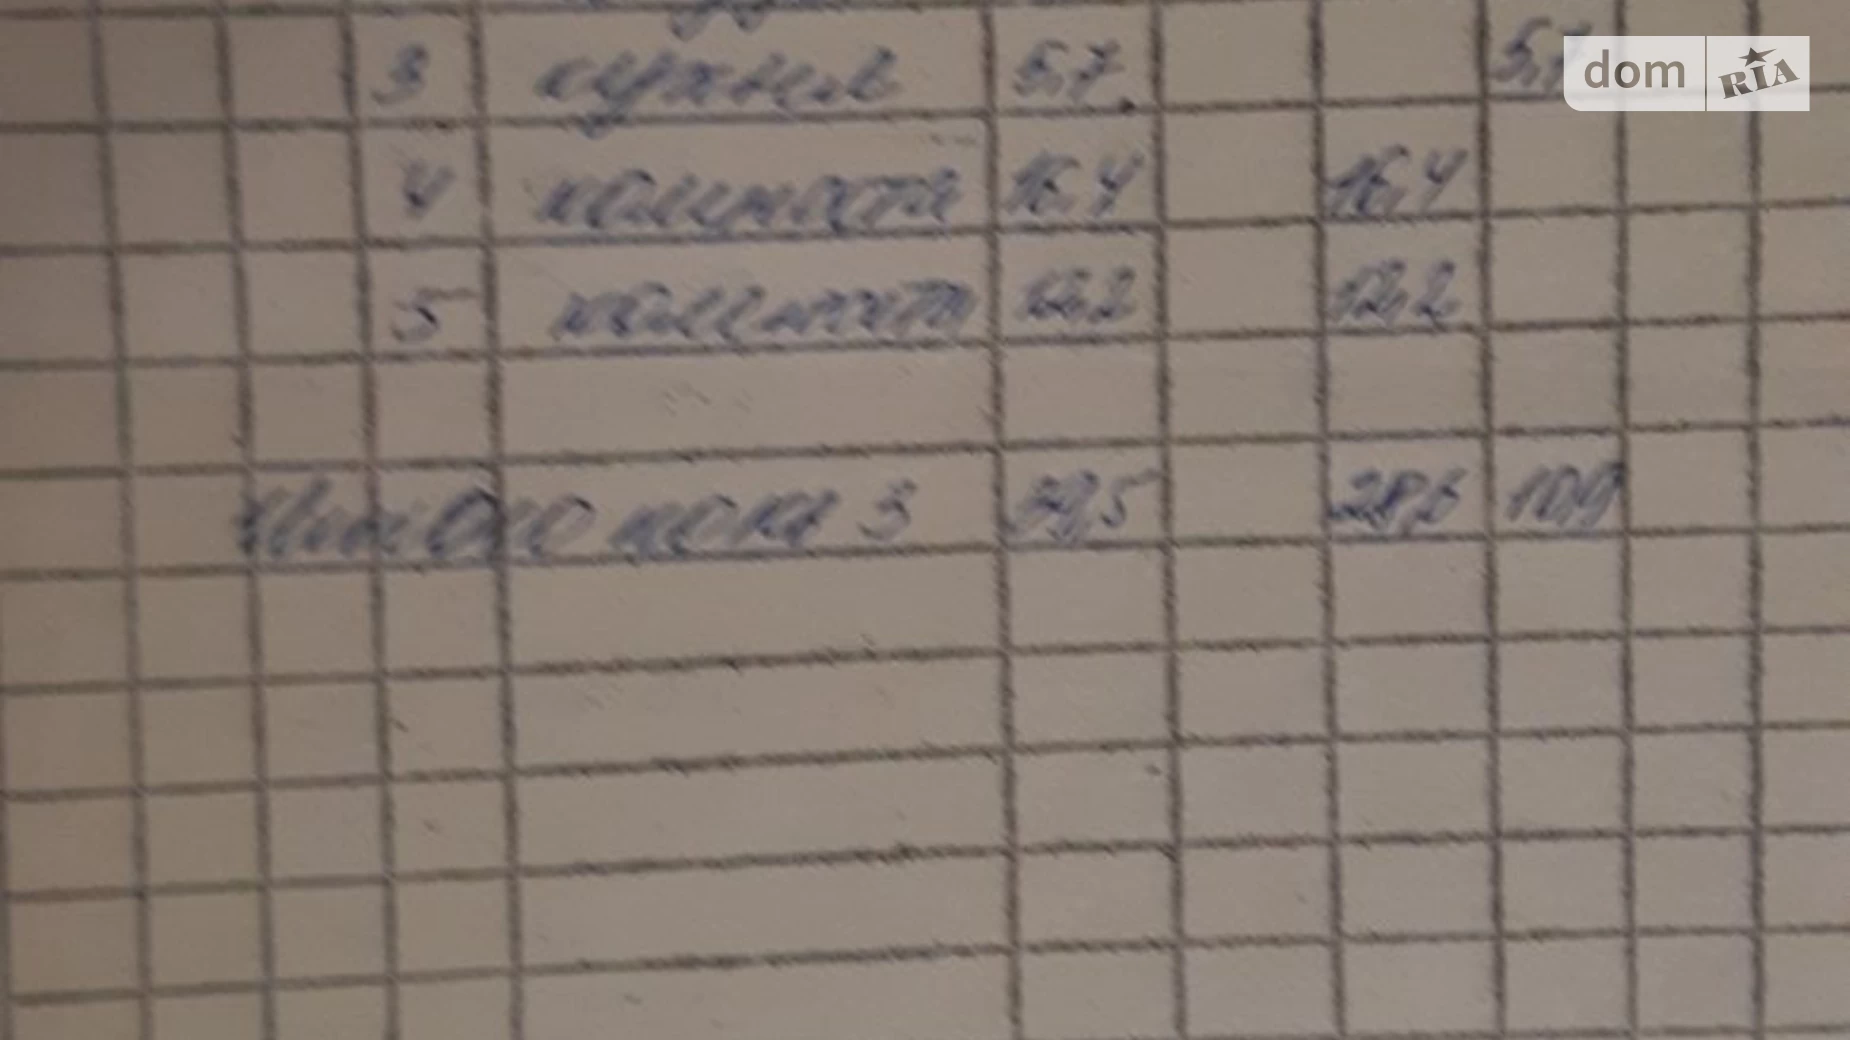 3 кухня 5,7 5,7
dom RIA
4 кімната 16,4 16,4
5 кімната 12,2 12,2
3 39,5 28,6 10,9